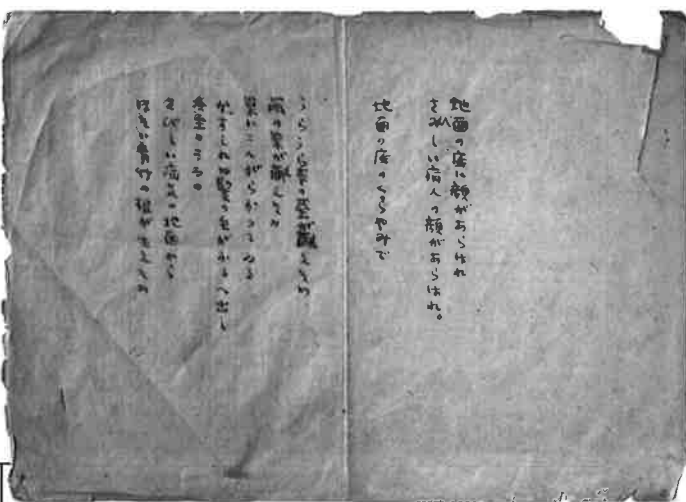 地面の底に顔があらはれ
さみしい病人の顔があらはれ。
地面の底のくらやみで
うらうら草の茎が萌えそめ
鼠の巣が萌えそめ
巣にこんがらかつてゐる
かずしれぬ髪の毛がふるへ出し
冬至のころの
さびしい病気の地面から
ほそい青竹の根が生えそめ